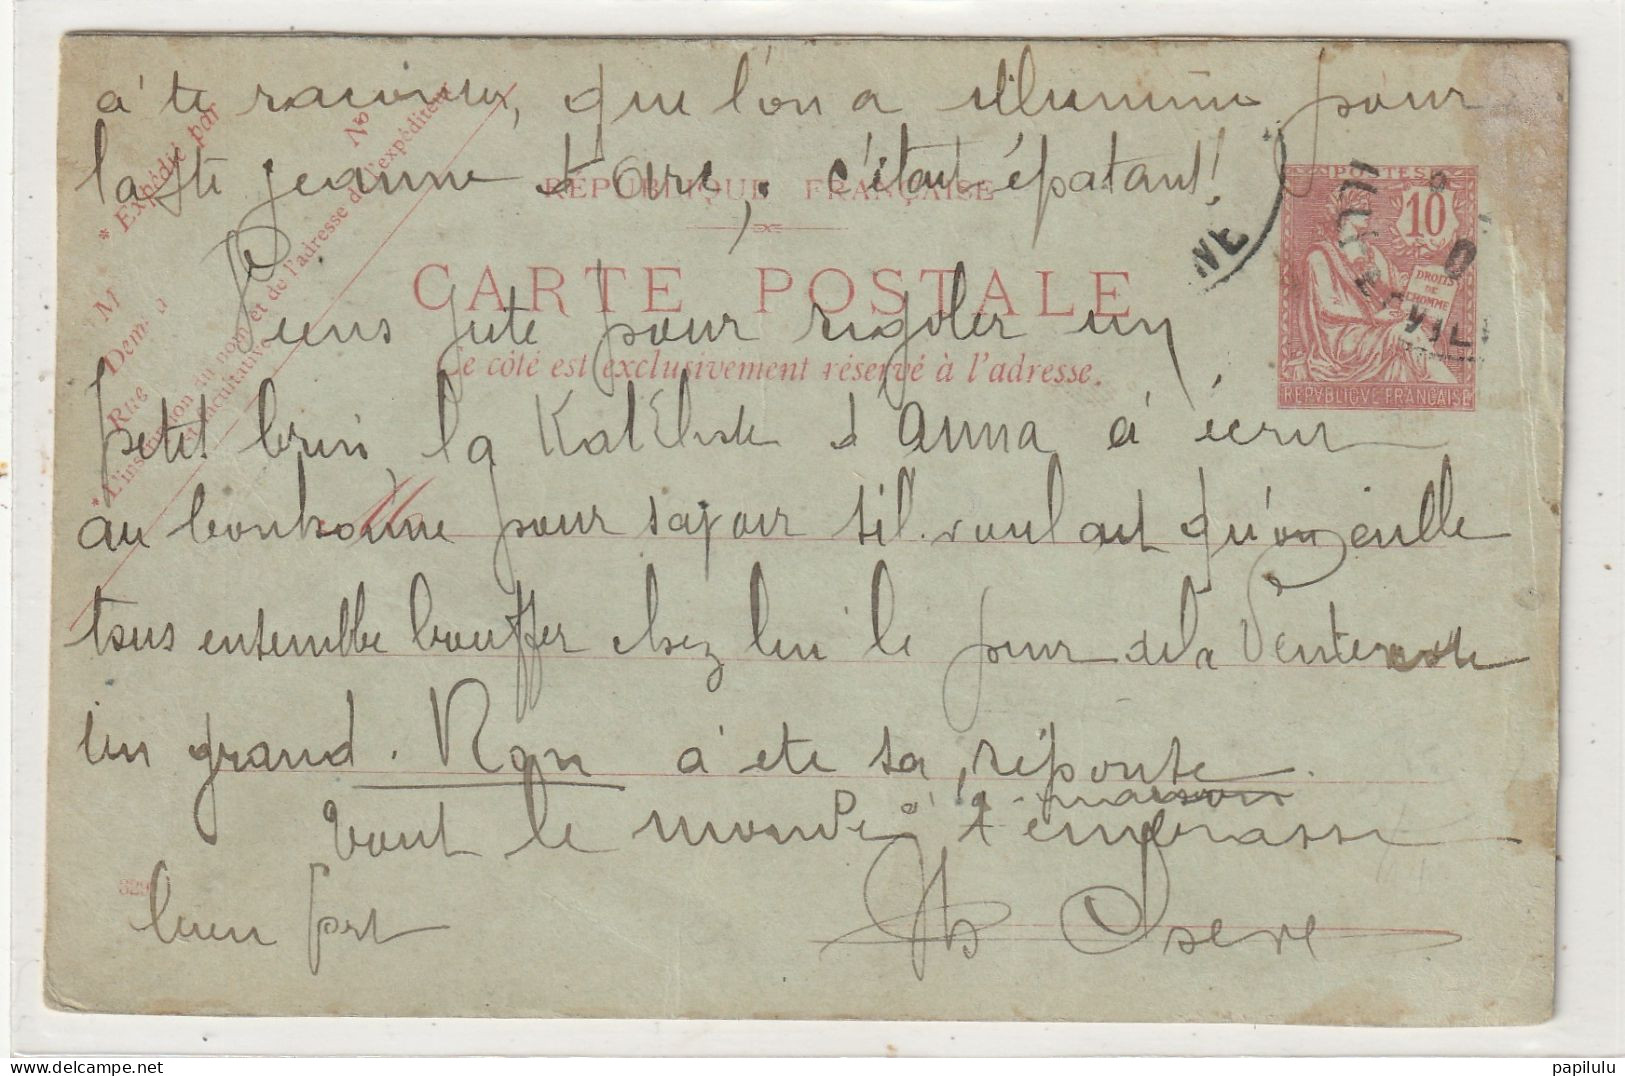 à te raconter, que l'on a illuminé pour
la fête jeanne d'arc, c'était épatant!
* Expédié par
No
M
Rue
* L'inscription du nom et de l'adresse de l'expéditeur
est facultative
REPUBLIQUE FRANÇAISE
CARTE POSTALE
Ce côté est exclusivement réservé à l'adresse.
POSTES
10
DROITS
DE
L'HOMME
REPVBLIQVE FRANÇAISE
NE
Piens jute pour rigoler un
petit brin, la d'anna à écrit
au bonhomme pour savoir s'il voulait qu'on aille
tous ensemble bouffer chez lui le jour de la Vente
un grand. Non à été sa réponse.
Tout le monde à la maison t'embrasse
bien fort
papilulu